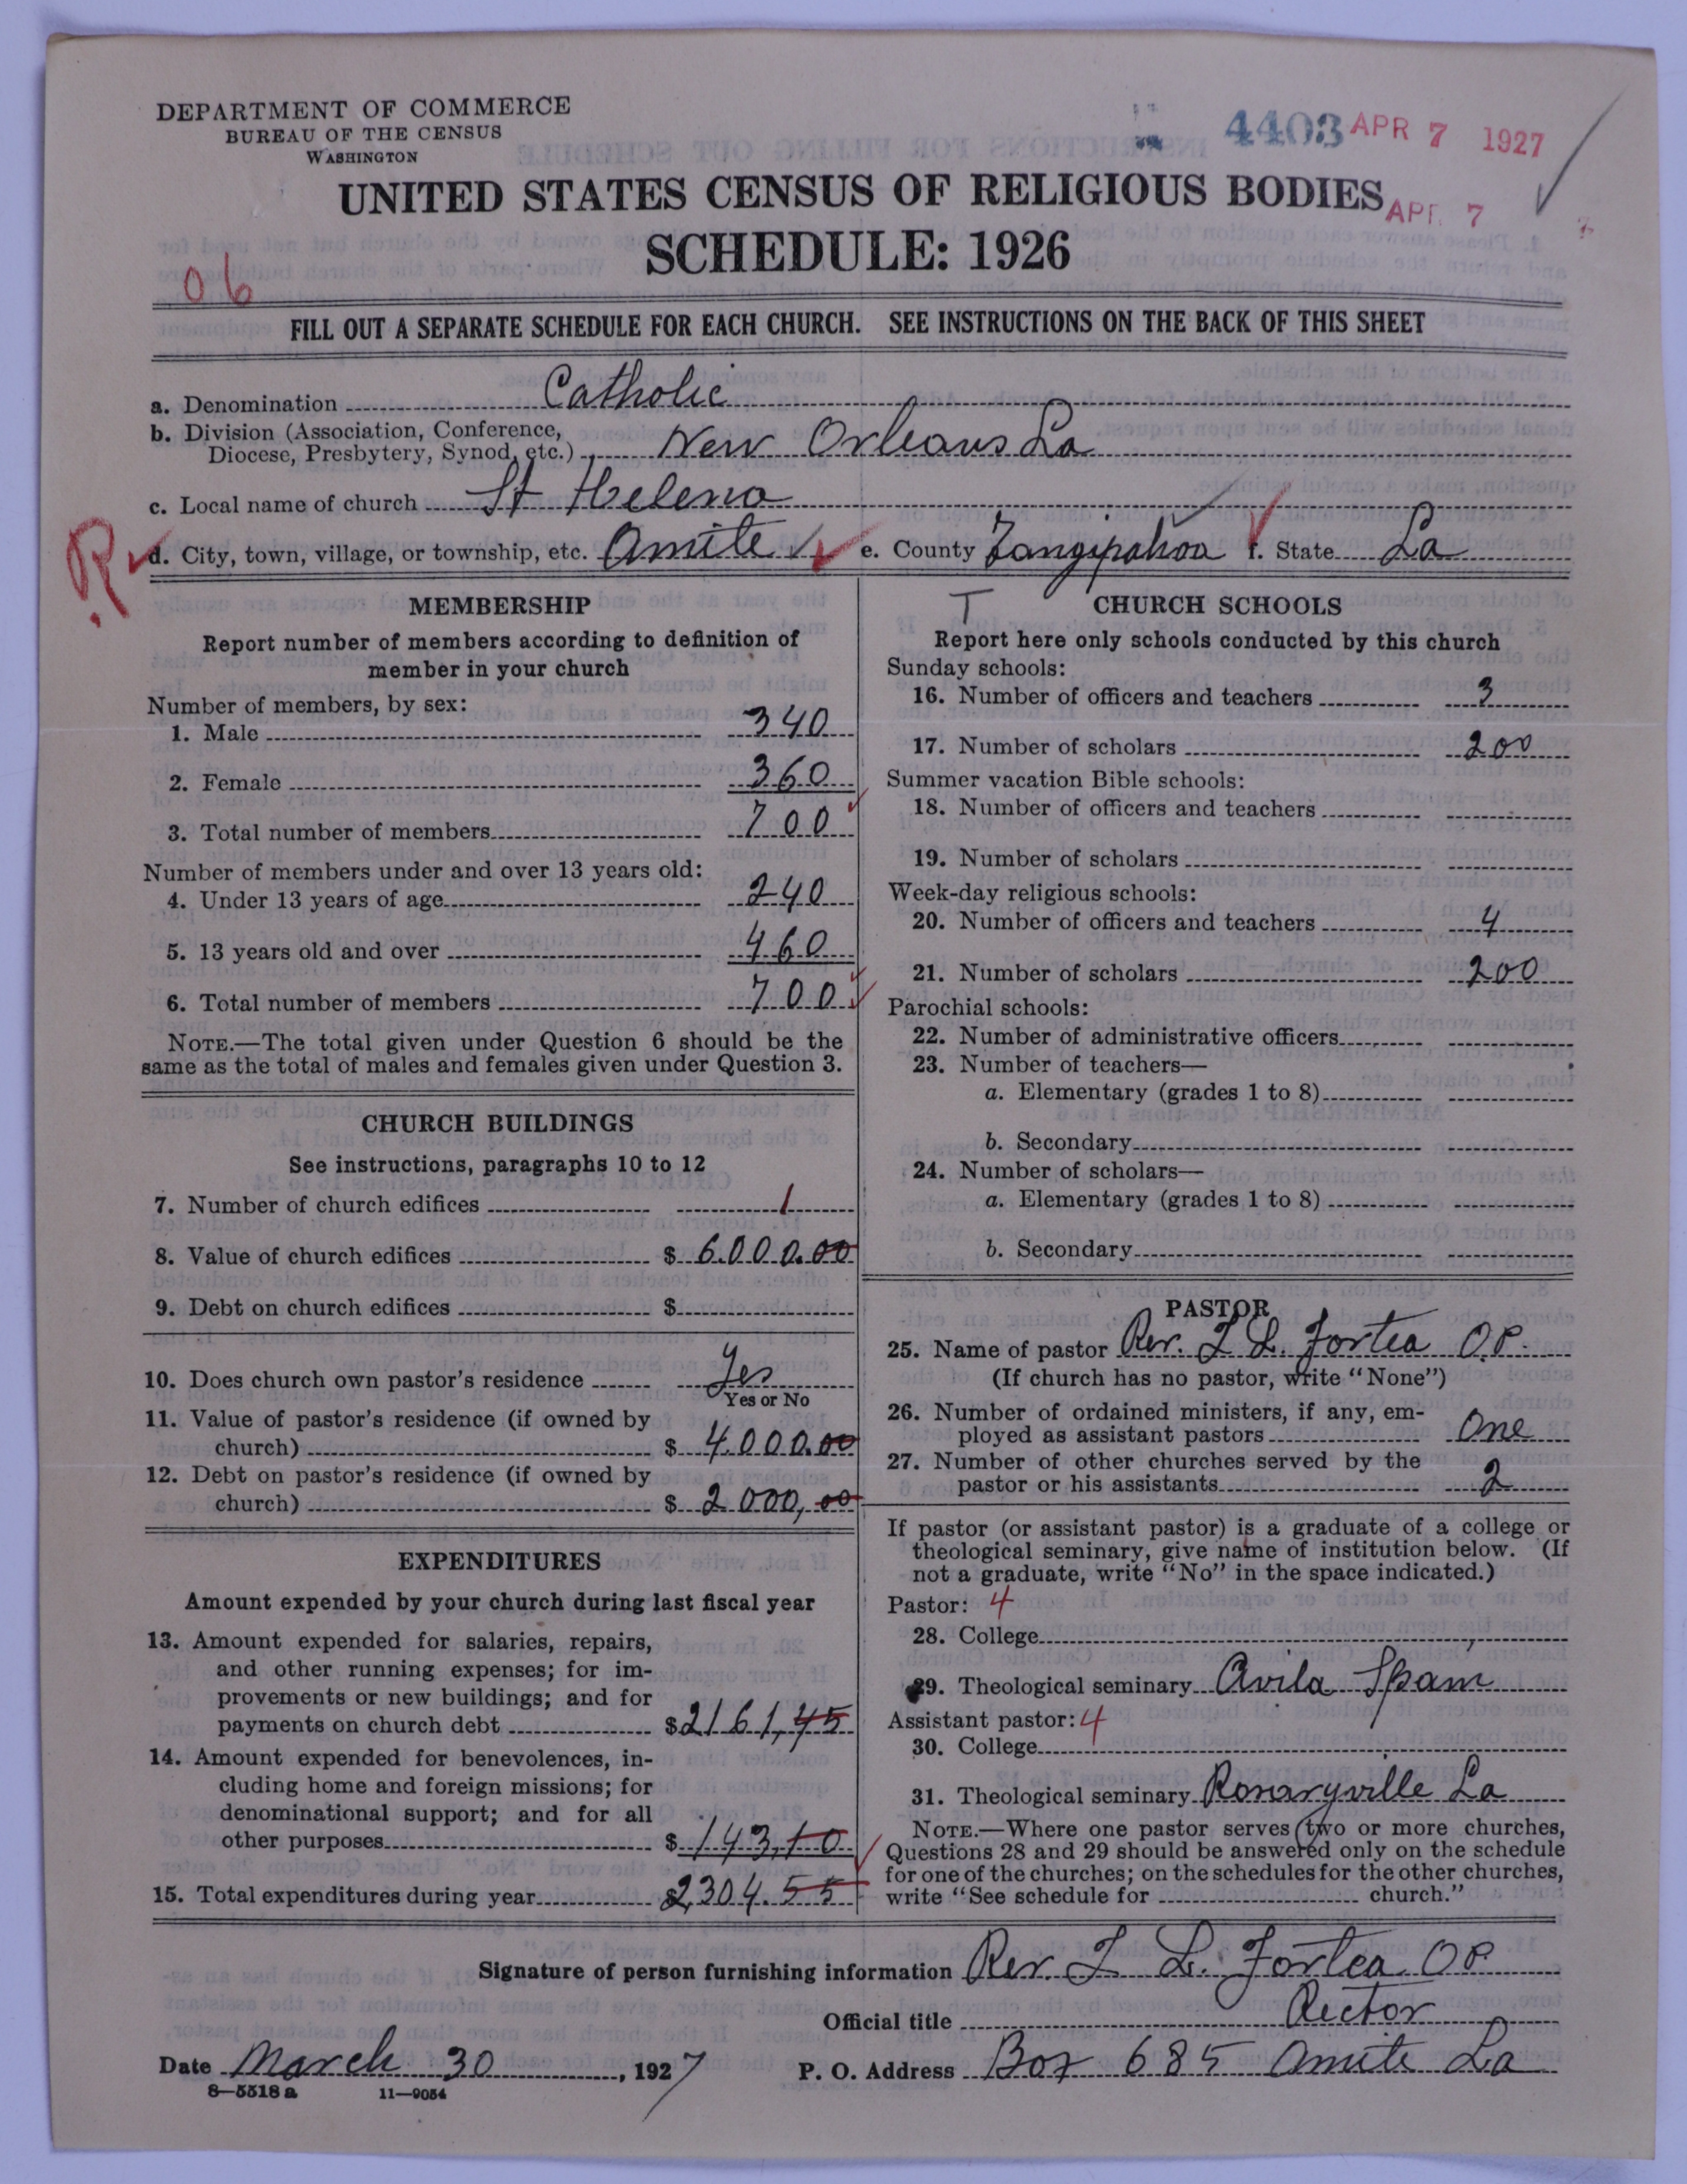 DEPARTMENT OF COMMERCE
BUREAU OF THE CENSUS
WASHINGTON
4403 APR 7 1927
UNITED STATES CENSUS OF RELIGIOUS BODIES
APR 7
SCHEDULE: 1926
06
FILL OUT A SEPARATE SCHEDULE FOR EACH CHURCH. SEE INSTRUCTIONS ON THE BACK OF THIS SHEET
a. Denomination Catholic
b. Division (Association, Conference,
Diocese, Presbytery, Synod, etc.) New Orleans La
c. Local name of church St Helena
R d. City, town, village, or township, etc. Amite e. County Tangipahoa f. State La
MEMBERSHIP
Report number of members according to definition of
member in your church
Number of members, by sex:
1. Male 340
2. Female 360
3. Total number of members 700
Number of members under and over 13 years old:
4. Under 13 years of age 240
5. 13 years old and over 460
6. Total number of members 700
NOTE.—The total given under Question 6 should be the
same as the total of males and females given under Question 3.
CHURCH BUILDINGS
See instructions, paragraphs 10 to 12
7. Number of church edifices 1
8. Value of church edifices $ 6000.00
9. Debt on church edifices $
10. Does church own pastor's residence Yes
Yes or No
11. Value of pastor's residence (if owned by
church) $ 4000.00
12. Debt on pastor's residence (if owned by
church) $ 2000,00
EXPENDITURES
Amount expended by your church during last fiscal year
13. Amount expended for salaries, repairs,
and other running expenses; for im-
provements or new buildings; and for
payments on church debt $2161,45
14. Amount expended for benevolences, in-
cluding home and foreign missions; for
denominational support; and for all
other purposes $ 143,10
15. Total expenditures during year $2304.55
T CHURCH SCHOOLS
Report here only schools conducted by this church
Sunday schools:
16. Number of officers and teachers 3
17. Number of scholars 200
Summer vacation Bible schools:
18. Number of officers and teachers
19. Number of scholars
Week-day religious schools:
20. Number of officers and teachers 4
21. Number of scholars 200
Parochial schools:
22. Number of administrative officers
23. Number of teachers—
a. Elementary (grades 1 to 8)
b. Secondary
24. Number of scholars—
a. Elementary (grades 1 to 8)
b. Secondary
PASTOR
25. Name of pastor Rev. L. Fortea O.P.
(If church has no pastor, write "None")
26. Number of ordained ministers, if any, em-
ployed as assistant pastors One
27. Number of other churches served by the
pastor or his assistants 2
If pastor (or assistant pastor) is a graduate of a college or
theological seminary, give name of institution below. (If
not a graduate, write "No" in the space indicated.)
Pastor: 4
28. College
29. Theological seminary Avila Spain
Assistant pastor: 4
30. College
31. Theological seminary Rosaryville La
NOTE.—Where one pastor serves two or more churches,
Questions 28 and 29 should be answered only on the schedule
for one of the churches; on the schedules for the other churches,
write "See schedule for church."
Signature of person furnishing information Rev. L. Fortea OP
Official title Rector
Date March 30, 1927 P. O. Address Box 685 Amite La
8—5518 a 11—9054